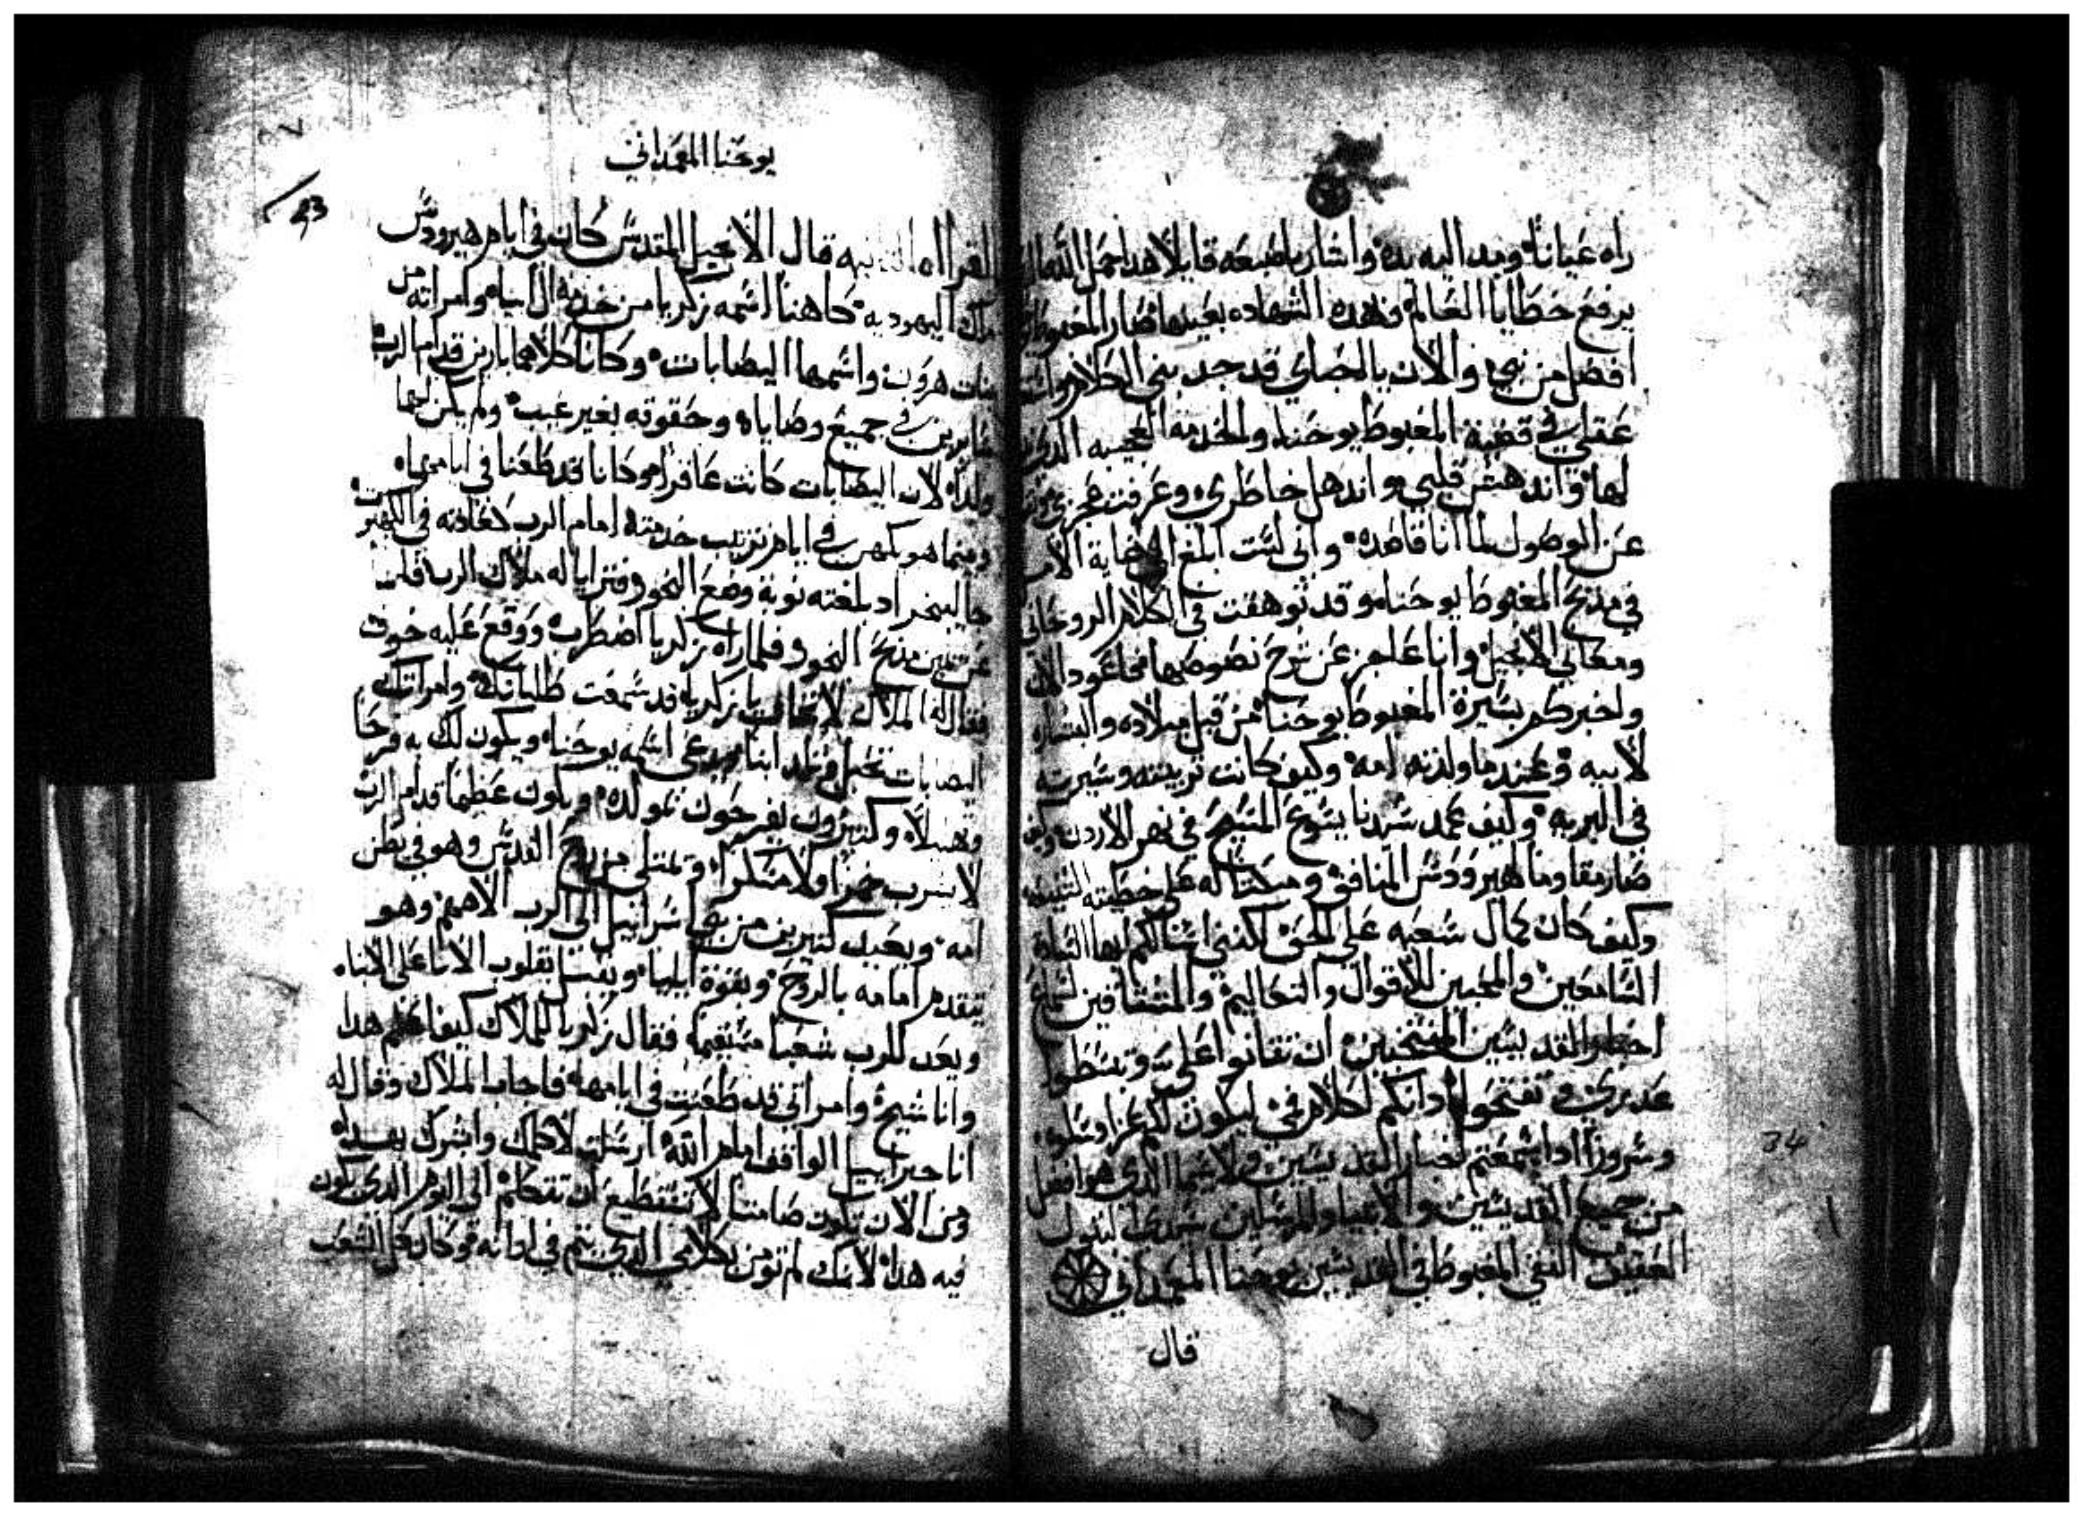 راه عيانا ومد اليه يده واشار باصبعه قايلا هدا حمل الله
يرفع خطايا العالم وهده الشهاده بعينها صار المغبوط
افضل من نبي والان يا احباي قد جدبني الكلام
عقلي في قصة المغبوط يوحنا والخدمه العجيبه الدي
لها واندهش قلبي واندهل خاطري وعرفت عجزي
عن الوصول لما انا قاصده واني لست ابلغ الي غاية
في مديح المغبوط يوحنا وقد توهقت في الكلام الروحاني
ومعاني الانجيل وانا عاجز عن شرح نصوصها اعود الان
واخبركم بسيرة المغبوط يوحنا من قبل ميلاده والبشاره
لابيه وعند ما ولدته امه وكيف كانت تربيته وسيرته
في البريه وكيف عمد سيدنا يسوع المسيح في نهر الاردن وكيف
صار مقاوما لهيرودس المنافق ومبكتا له علي خطيته
وكيف كان كمال سعيه علي الحق لكنني اسالكم ايها الساده
السامعين والمحبين للاقوال والتعاليم والمشتاقين لسماع
اخبار القديسين المنتخبين ان
عدري وتفتحوا ادانكم لكلام ليكون لكم عزا وسلوه
وسرورا ادا سمعتم اخبار القديسين ولا سيما الدي هو افضل
من جميع القديسين والانبيا والمرسلين
النقي المغبوط في القديسين يوحنا المعمداني
قال
يوحنا المعمداني
23
قال الانجيل المقدس كان في ايام هيرودس
ملك اليهوديه كاهنا اسمه زكريا من خدمة ال ابياه وامراته من
بنات هرون واسمها اليصابات وكانا كلاهما بارين قدام الرب
سايرين في جميع وصاياه وحقوقه بغير عيب ولم يكن لهما
ولدا لان اليصابات كانت عاقرا وكانا قد طعنا في ايامهما
وبينما هو يكهن في ايام ترتيب خدمته امام الرب كعادته في الكهنوت
اد بلغته نوبة وضع البخور فترايا له ملاك الرب قايما
عن يمين مدبح البخور فلما راه زكريا اضطرب ووقع عليه خوف
فقال له الملاك لا تخاف يا زكريا قد سمعت طلباتك وامراتك
اليصابات تحبل وتلد ابنا ويدعي اسمه يوحنا ويكون لك به فرحا
وتهليلا وكثيرون يفرحون بمولده ويكون عظيما قدام الرب
لا يشرب خمرا ولا مسكرا ويمتلي من روح القدس وهو في بطن
امه ويعيد كثيرين من بني اسراييل الي الرب الاههم وهو
يتقدم امامه بالروح وبقوة ايليا بقلوب الابا علي الابنا
ويعد للرب شعبا مستقيما فقال زكريا للملاك كيف اعلم هدا
وانا شيخ وامراتي قد طعنت في ايامها فاجاب الملاك وقال له
انا جبراييل الواقف امام الله ارسلت لاكلمك وابشرك بهدا
ومن الان تكون صامتا لا تستطيع ان تتكلم الي اليوم الدي يكون
فيه هدا لانك لم تومن بكلامي الدي يتم في اوانه وكان كل الشعب
34